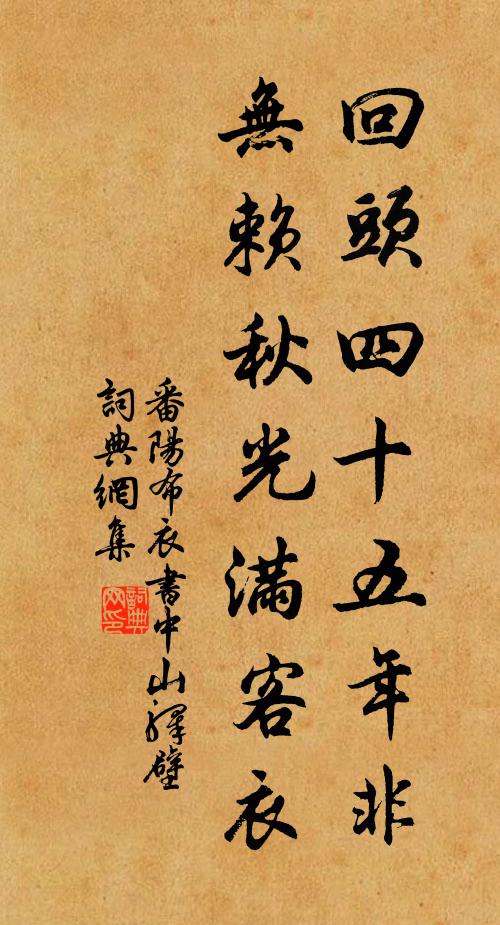 回頭四十五年非
無賴秋光滿客衣
番陽布衣書中山驛壁
詞典網集
詞典网印